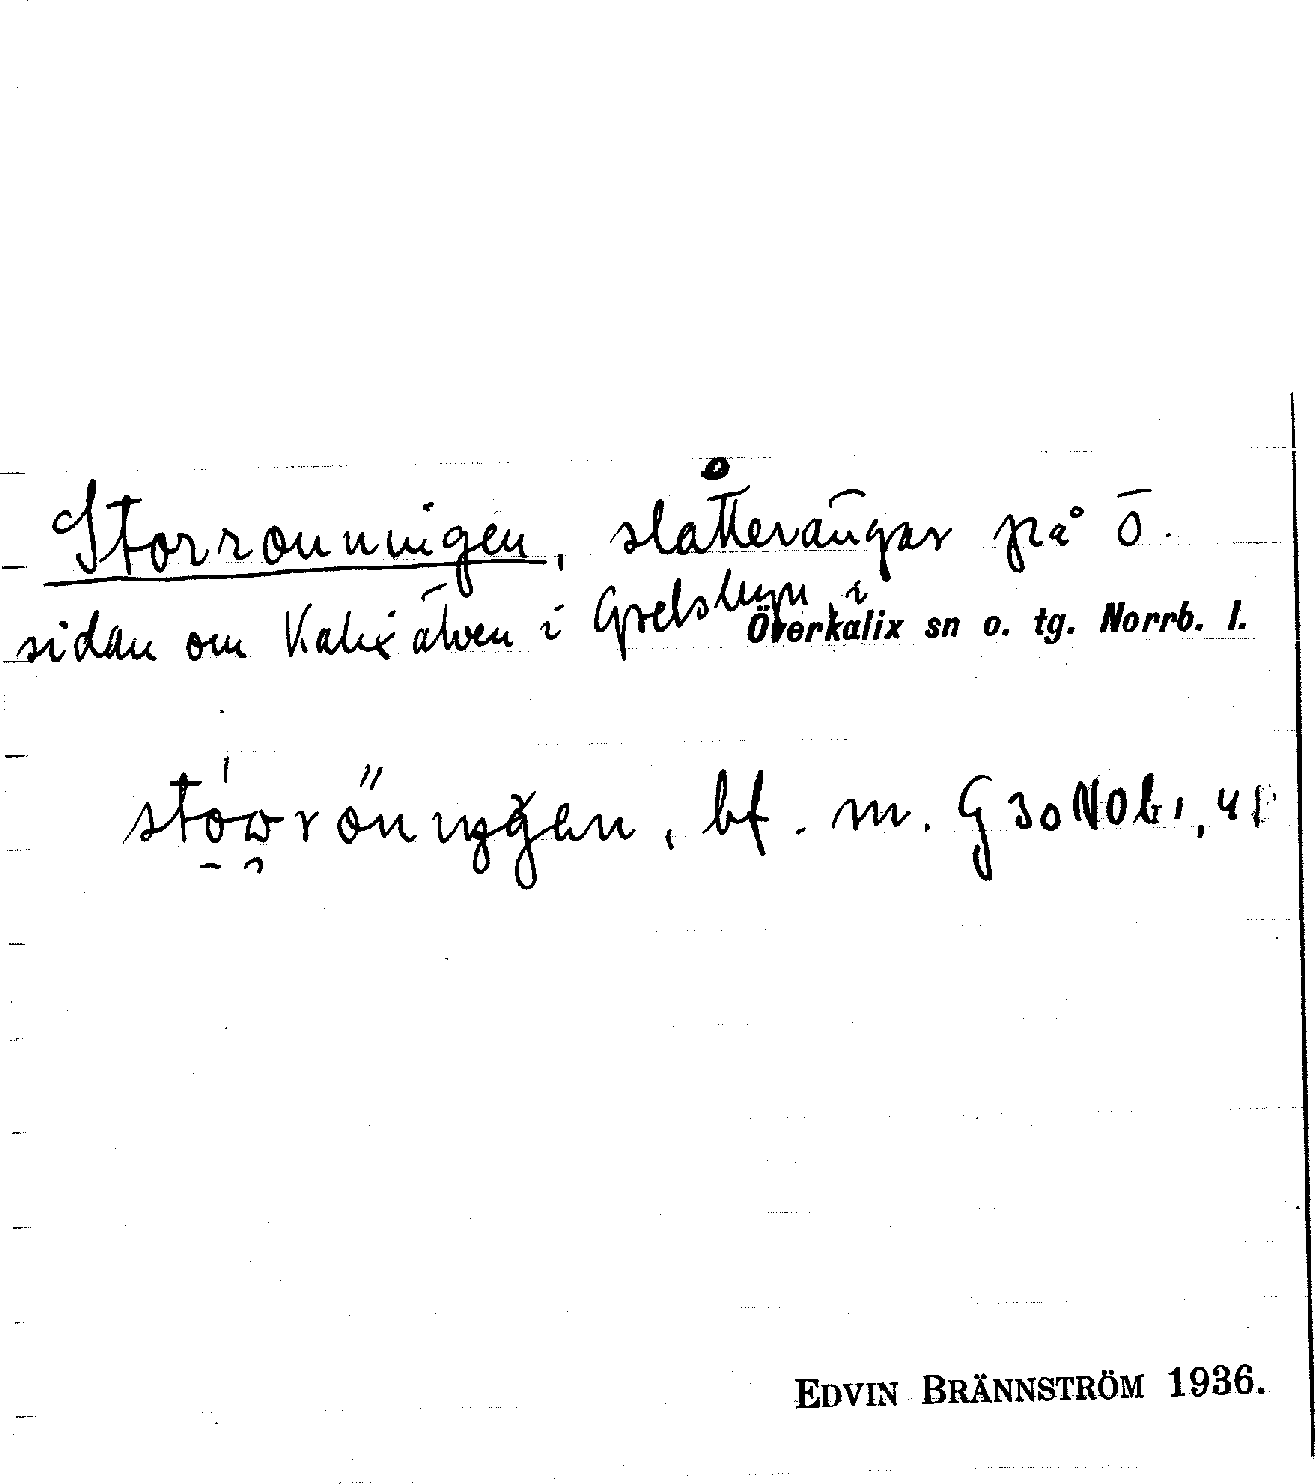 Storrönningen, slåtterängar på ö.
sidan om Kalixälven i Grelsbyn i Överkalix sn o. tg. Norrb. l.
bf. m. G 30 N Ob 1,
EDVIN BRÄNNSTRÖM 1936.